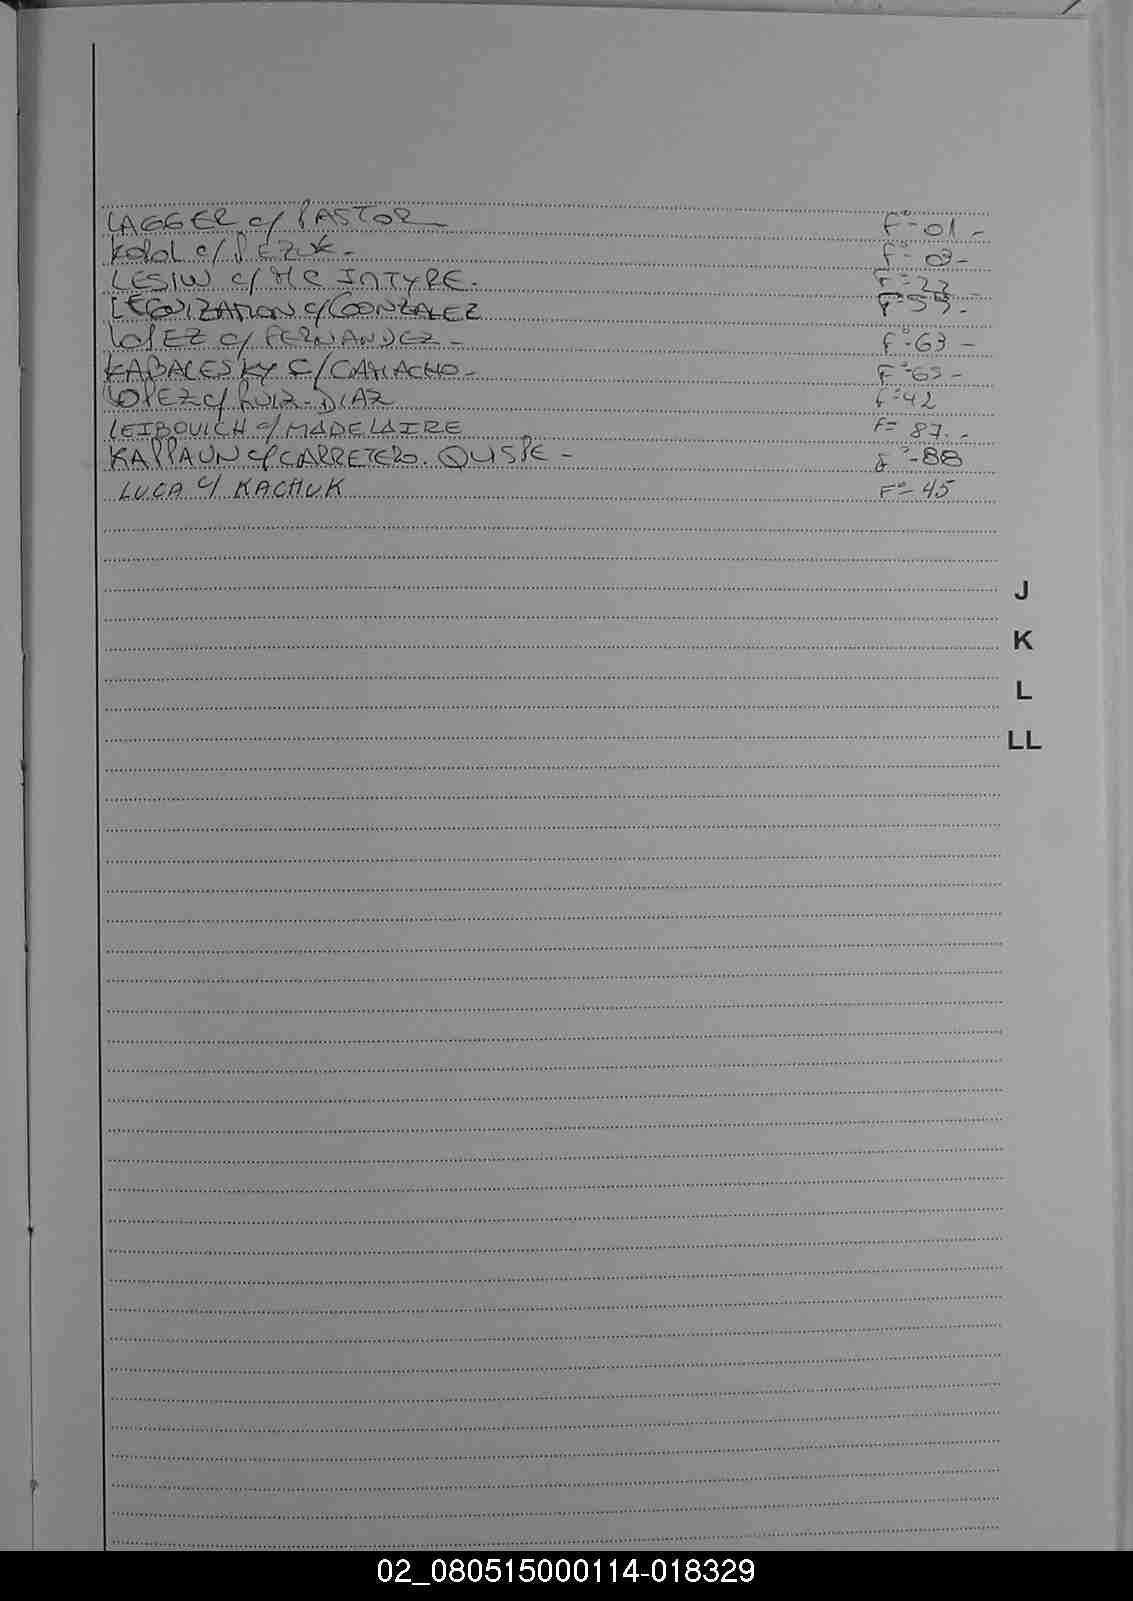 LAGGER c/ PASTOR F°= 01 -
KOROL c/ PEZUK - F°= 03 -
LESIW c/ MC INTYRE. F°= 22 -
LEGUIZAMON c/ GONZALEZ F°55 -
LOPEZ c/ FERNANDEZ - F°= 63 -
KABALESKY C/ CAMACHO - F°=65 -
LOPEZ c/ RUIZ-DIAZ F°=42
LEIBOVICH c/ MADELAIRE F= 87. -
KAPPAUN c/ CARRETERO. QUSPE - F°-88
LUCA c/ KACHUK F°= 45
J
K
L
LL
02_080515000114-018329